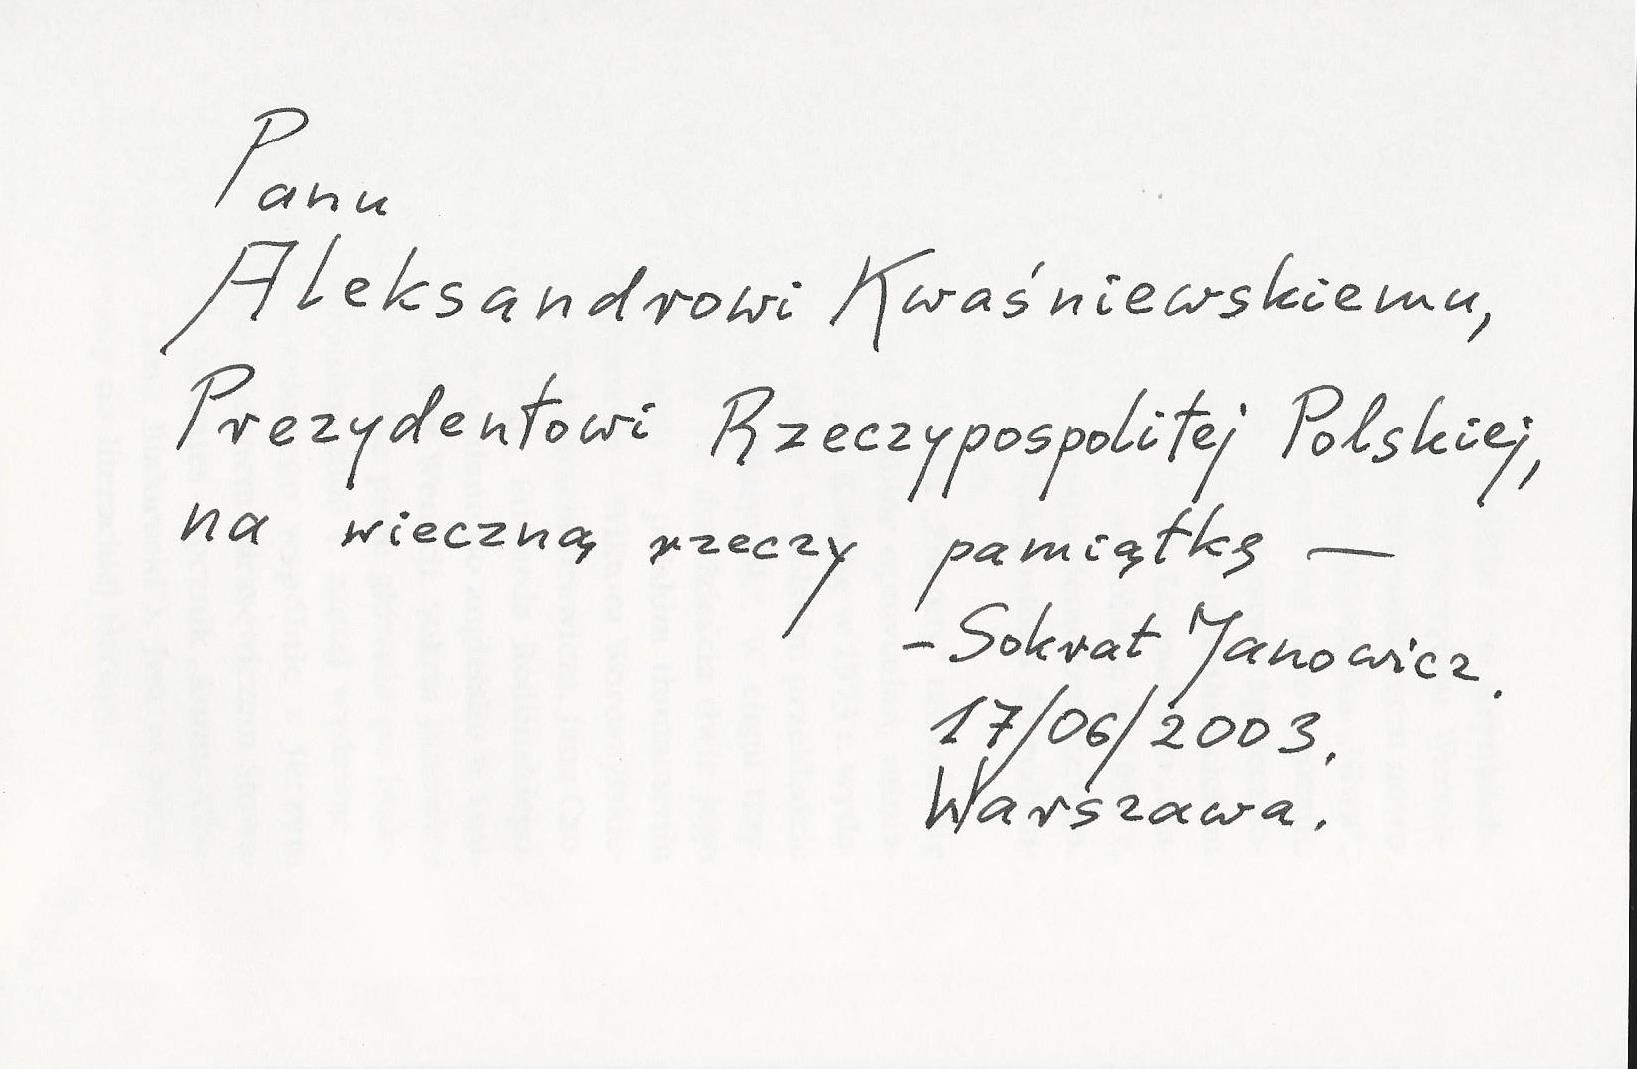 Panu
Aleksandrowi Kwaśniewskiemu,
Prezydentowi Rzeczypospolitej Polskiej,
na wieczną rzeczy pamiątkę —
– Sokrat Janowicz.
17/06/2003.
Warszawa.